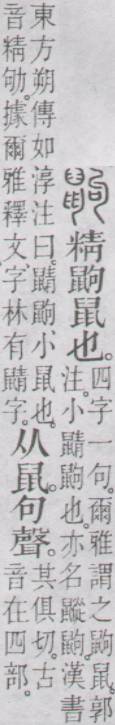 鼩 精鼩鼠也。四字一句。爾雅謂之鼩鼠。郭
注。小鼱鼩也。亦名蹤鼩。漢書
東方朔傳如淳注曰。鼱鼩、小鼠也。
音精劬。據爾雅釋文字林有鼱字。
从鼠。句聲。其俱切。古
音在四部。